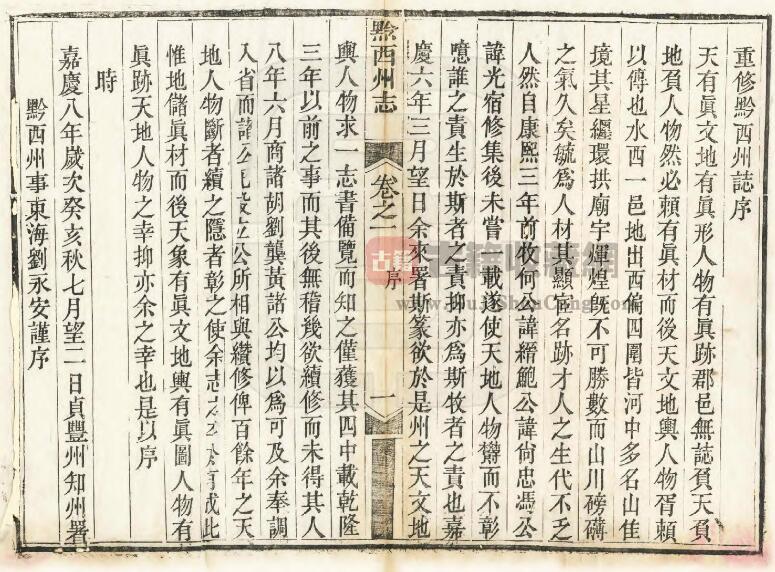 重修黔西州誌序
天有眞文地有眞形人物有眞跡郡邑無誌負天負
地負人物然必賴有眞材而後天文地輿人物胥賴
以傳也水西一邑地出西偏四圍皆河中多名山佳
境其星纒環拱廟宇煇煌旣不可勝數而山川磅礴
之氣久矣毓爲人材其顯宦名跡才人之生代不乏
人然自康熙三年前牧何公諱縉鮑公諱尙忠馮公
諱光宿修集後未嘗 載遂使天地人物欝而不彰
噫誰之責生於斯者之責抑亦爲斯牧者之責也嘉
慶六年三月望日余來署斯篆欲於是州之天文地
黔西州志
卷之一
序
一
輿人物求一志書備覽而知之僅獲其四中載乾隆
三年以前之事而其後無稽幾欲續修而未得其人
八年六月商諸胡劉龔黃諸公均以爲可及余奉調
入省而諸公 公所相與纘修俾百餘年之天
地人物斷者續之隱者彰之使余志 成此
惟地儲眞材而後天象有眞文地輿有眞圖人物有
眞跡天地人物之幸抑亦余之幸也是以序
時
嘉慶八年歲次癸亥秋七月望二日貞豐州知州署
黔西州事東海劉永安謹序
古籍